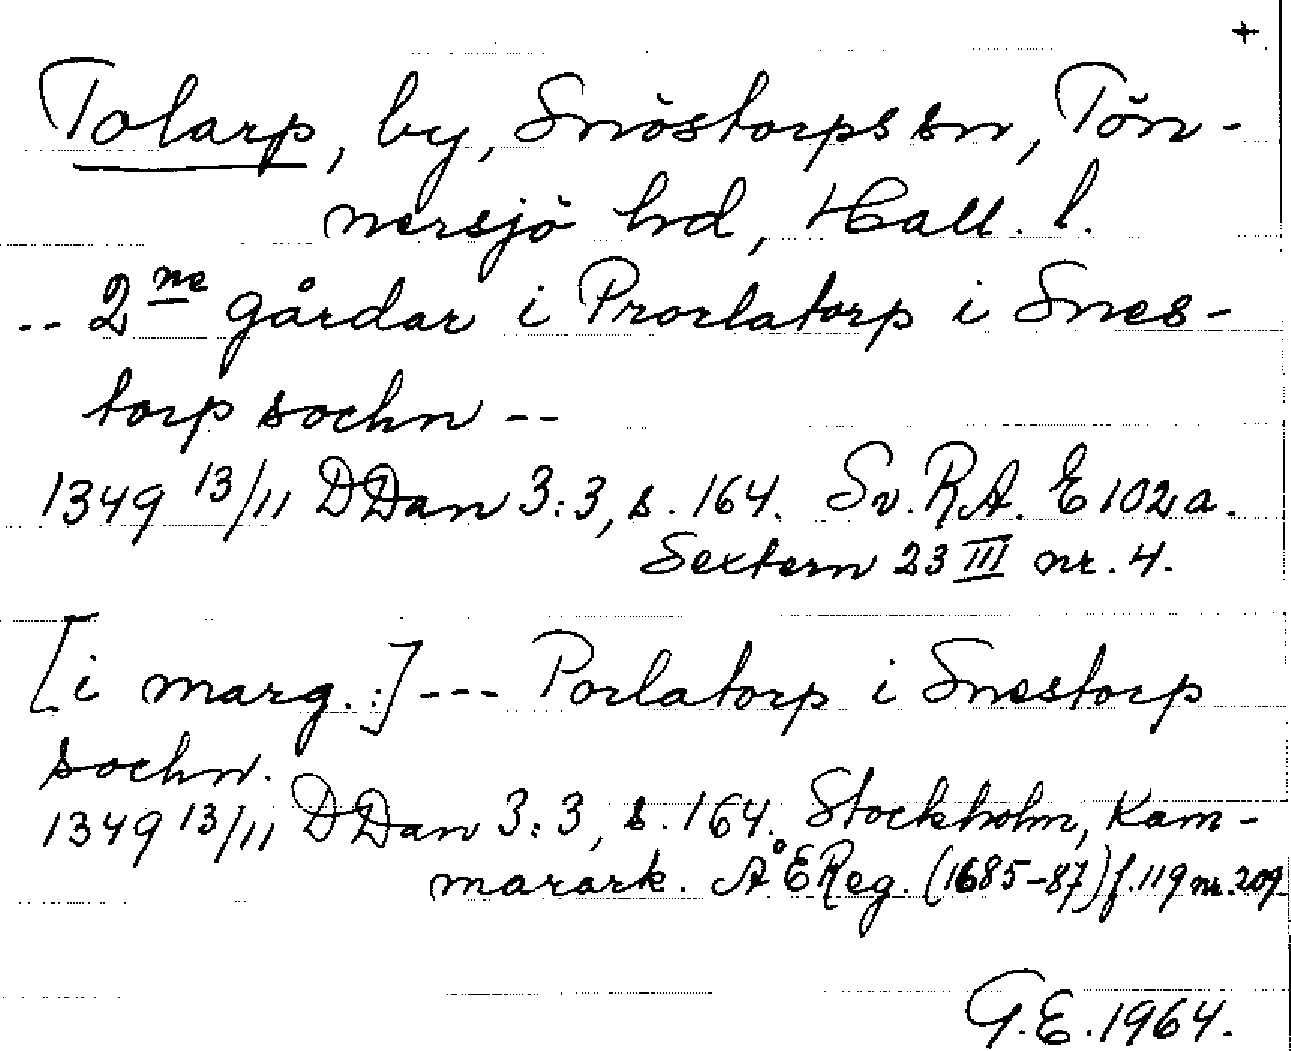 +
Tolarp, by, Snöstorps sn, Tön-
nersjö hd, Hall. l.
-- 2 ne gårdar i Prorlatorp i Snes-
torp sochn --
1349 13/11 DDan 3:3, s. 164. Sv. RA. E 102 a.
Sextern 23 III nr. 4.
[i marg.:] --- Porlatorp i Snestorp
sochn.
1349 13/11 DDan 3:3, s. 164. Stockholm, Kam-
marark. ÅEReg. (1685-87) f. 119 nr. 209.
G.E. 1964.